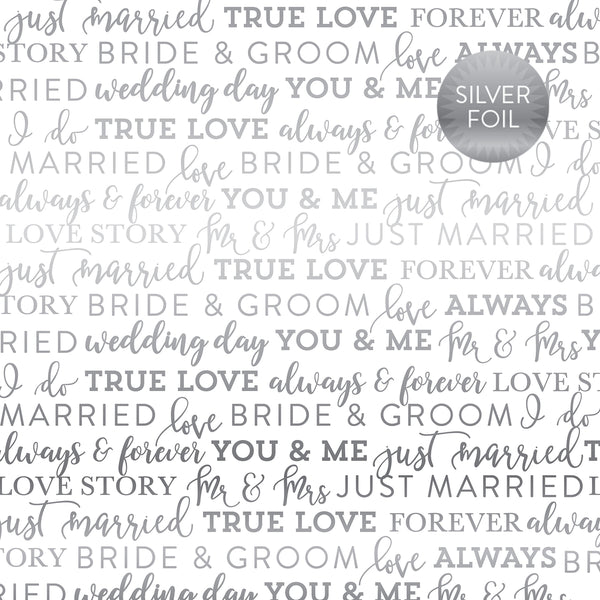 just married TRUE LOVE FOREVER alw
STORY BRIDE & GROOM love ALWAYS B
RRIED wedding day YOU & ME Mrs
SILVER
FOIL
I do TRUE LOVE always & for VE S
MARRIED love BRIDE & GROOM I do
always & forever YOU & ME just married
LOVE STORY Mr & Mrs JUST MARRIED
just married TRUE LOVE FOREVER alwa
TORY BRIDE & GROOM love ALWAYS B
RIED wedding day YOU & ME Mr & Mrs Y
I do TRUE LOVE always & forever LOVE ST
MARRIED love BRIDE & GROOM I do
always & forever YOU & ME just married T
LOVE STORY Mr & Mrs JUST MARRIED L
just married TRUE LOVE FOREVER alway
TORY BRIDE & GROOM love ALWAYS BR
IED wedding day YOU & ME Mr & Mrs